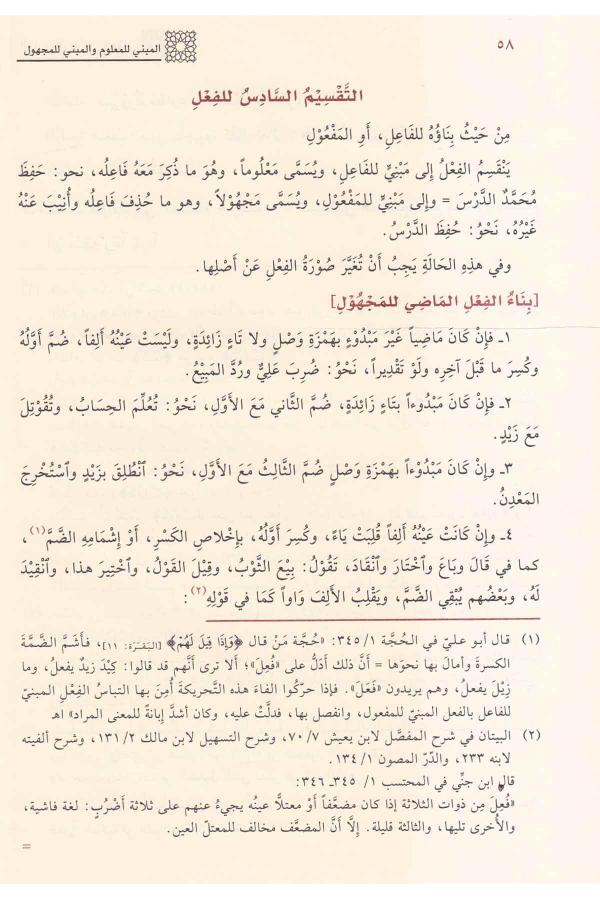 ٥٨
المبني للمعلوم والمبني للمجهول
التَّقْسِيْمُ السَّادِسُ للفِعْلِ
مِنْ حَيْثُ بِنَاؤُهُ للفَاعِلِ، أَوِ المَفْعُوْلِ
يَنْقَسِمُ الفِعْلُ إلى مَبْنِيٍّ للفَاعِلِ، ويُسَمَّى مَعْلُوماً، وهُوَ ما ذُكِرَ مَعَهُ فَاعِلُه، نحو: حَفِظَ
مُحَمَّدٌ الدَّرْسَ = وإلى مَبْنِيٍّ للمَفْعُوْلِ، ويُسَمَّى مَجْهُوْلاً، وهو ما حُذِفَ فَاعِلُه وأُنِيْبَ عَنْهُ
غَيْرُهُ، نَحْوُ: حُفِظَ الدَّرْسُ.
وفي هذِهِ الحَالَةِ يَجِبُ أَنْ تُغَيَّرَ صُوْرَةُ الفِعْلِ عَنْ أَصْلِها.
[بِنَاءُ الفِعْلِ المَاضِي للمَجْهُوْلِ]
١ـ فإِنْ كَانَ مَاضِياً غَيْرَ مَبْدُوْءٍ بهَمْزَةِ وَصْلٍ ولا تَاءٍ زَائِدَةٍ، ولَيْسَتْ عَيْنُهُ أَلِفاً، ضُمَّ أَوَّلُهُ
وكُسِرَ ما قَبْلَ آخِرِه ولَوْ تَقْدِيراً، نَحْوُ: ضُرِبَ عَلِيٌّ ورُدَّ المَبِيْعُ.
٢ـ فإِنْ كَانَ مَبْدُوءاً بتَاءٍ زَائِدَةٍ، ضُمَّ الثَّاني مَعَ الأَوَّلِ، نَحْوُ: تُعُلِّمَ الحِسَابُ، وتُقُوْتِلَ
مَعَ زَيْدٍ.
٣ـ وإِنْ كَانَ مَبْدُوْءاً بهَمْزَةِ وَصْلٍ ضُمَّ الثَّالِثُ مَعَ الأَوَّلِ، نَحْوُ: ٱنْطُلِقَ بزَيْدٍ وٱسْتُخْرِجَ
المَعْدِنُ.
٤ـ وإِنْ كَانَتْ عَيْنُهُ أَلِفاً قُلِبَتْ يَاءً، وكُسِرَ أَوَّلُهُ، بإِخْلاصِ الكَسْرِ، أَوْ إِشْمَامِهِ الضَّمَّ(١)،
كما في قَالَ وبَاعَ وٱخْتَارَ وٱنْقَادَ، تَقُوْلُ: بِيْعَ الثَّوْبُ، وقِيْلَ القَوْلُ، وٱخْتِيرَ هذا، وٱنْقِيْدَ
لَهُ، وبَعْضُهم يُبْقِي الضَّمَّ، ويَقْلِبُ الأَلِفَ وَاواً كَمَا في قَوْلِهِ(٢):
(١) قال أبو عليّ في الحُجَّة ١/٣٤٥: «حُجَّة مَنْ قال ﴿وَإِذَا قِيلَ لَهُمْ﴾ [البَقَرَة: ١١]، فأَشَمَّ الضَّمَّةَ
الكسرةَ وأمالَ بها نحوَها = أنَّ ذلك أدَلُّ على «فُعِلَ»؛ ألا ترى أنَّهم قد قالوا: كِيْدَ زيدٌ يفعلُ، وما
زِيْلَ يفعلُ، وهم يريدون «فَعَلَ». فإذا حرّكوا الفاءَ هذه التَّحريكةَ أُمِنَ بها التباسُ الفِعْلِ المبنيّ
للفاعل بالفعل المبنيّ للمفعول، وانفصل بها، فدلَّتْ عليه، وكان أشدَّ إبانةً للمعنى المراد» اهـ
(٢) البيتان في شرح المفصَّل لابن يعيش ٧٠/٧، وشرح التسهيل لابن مالك ١٣١/٢، وشرح ألفيته
لابنه ٢٣٣، والدّرّ المصون ١٣٤/١.
قال ابن جنِّي في المحتسب ١/ ٣٤٥ـ ٣٤٦:
«فُعِلَ مِن ذوات الثلاثة إذا كان مضعَّفاً أوْ معتلّاً عينُه يجيءُ عنهم على ثلاثة أضْرُبٍ: لغة فاشية،
والأُخرى تليها، والثالثة قليلة. إلَّا أنَّ المضعَّف مخالف للمعتلّ العين.
=